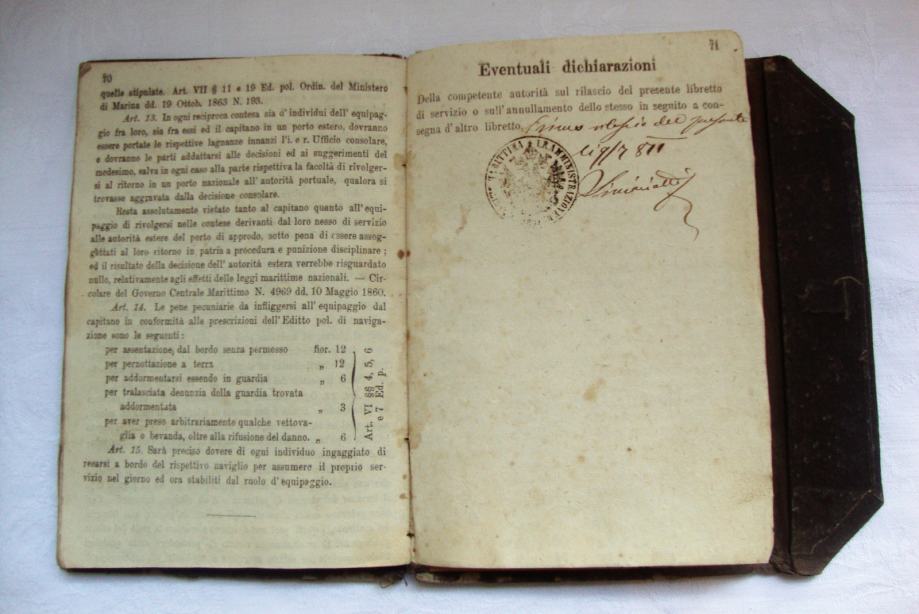 70
quelle stipulate. Art. VII § 11 e 19 Ed. pol. Ordin. del Ministero
di Marina dd. 19 Ottob. 1863 N. 193.
Art. 13. In ogni reciproca contesa sia d' individui dell' equipag-
gio fra loro, sia fra essi ed il capitano in un porto estero, dovranno
essere portate le rispettive lagnanze innanzi l'i. e r. Ufficio consolare,
e dovranno le parti addattarsi alle decisioni ed ai suggerimenti del
medesimo, salva in ogni caso alla parte rispettiva la facoltà di rivolger-
si al ritorno in un porto nazionale all' autorità portuale, qualora si
trovasse aggravata dalla decisione consolare.
Resta assolutamente vietato tanto al capitano quanto all' equi-
paggio di rivolgersi nelle contese derivanti dal loro nesso di servizio
alle autorità estere del porto di approdo, sotto pena di essere assog-
gettati al loro ritorno in patria a procedura e punizione disciplinare ;
ed il risultato della decisione dell' autorità estera verrebbe risguardato
nullo, relativamente agli effetti delle leggi marittime nazionali. — Cir-
colare del Governo Centrale Marittimo N. 4969 dd. 10 Maggio 1860.
Art. 14. Le pene pecuniarie da infliggersi all' equipaggio dal
capitano in conformità alle prescrizioni dell' Editto pol. di naviga-
zione sono le seguenti :
per assentazione dal bordo senza permesso fior. 12
per pernottazione a terra „ 12
per addormentarsi essendo in guardia „ 6
per tralasciata denunzia della guardia trovata
addormentata „ 3
per aver preso arbitrariamente qualche vettova-
glia o bevanda, oltre alla rifusione del danno. „ 6
Art. VI §§ 4, 5, 6
e 7 Ed. p.
Art. 15. Sarà preciso dovere di ogni individuo ingaggiato di
recarsi a bordo del rispettivo naviglio per assumere il proprio ser-
vizio nel giorno ed ora stabiliti dal ruolo d' equipaggio.
71
Eventuali dichiarazioni
Della competente autorità sul rilascio del presente libretto
di servizio o sull' annullamento dello stesso in seguito a con-
segna d'altro libretto.
del presente
MARITTIMA